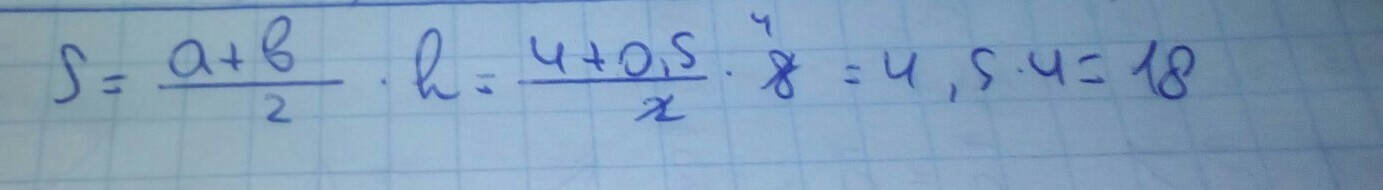 S = \frac{a+b}{2} · h = \frac{4+0,5}{2} · 8 4 = 4,5·4 = 18